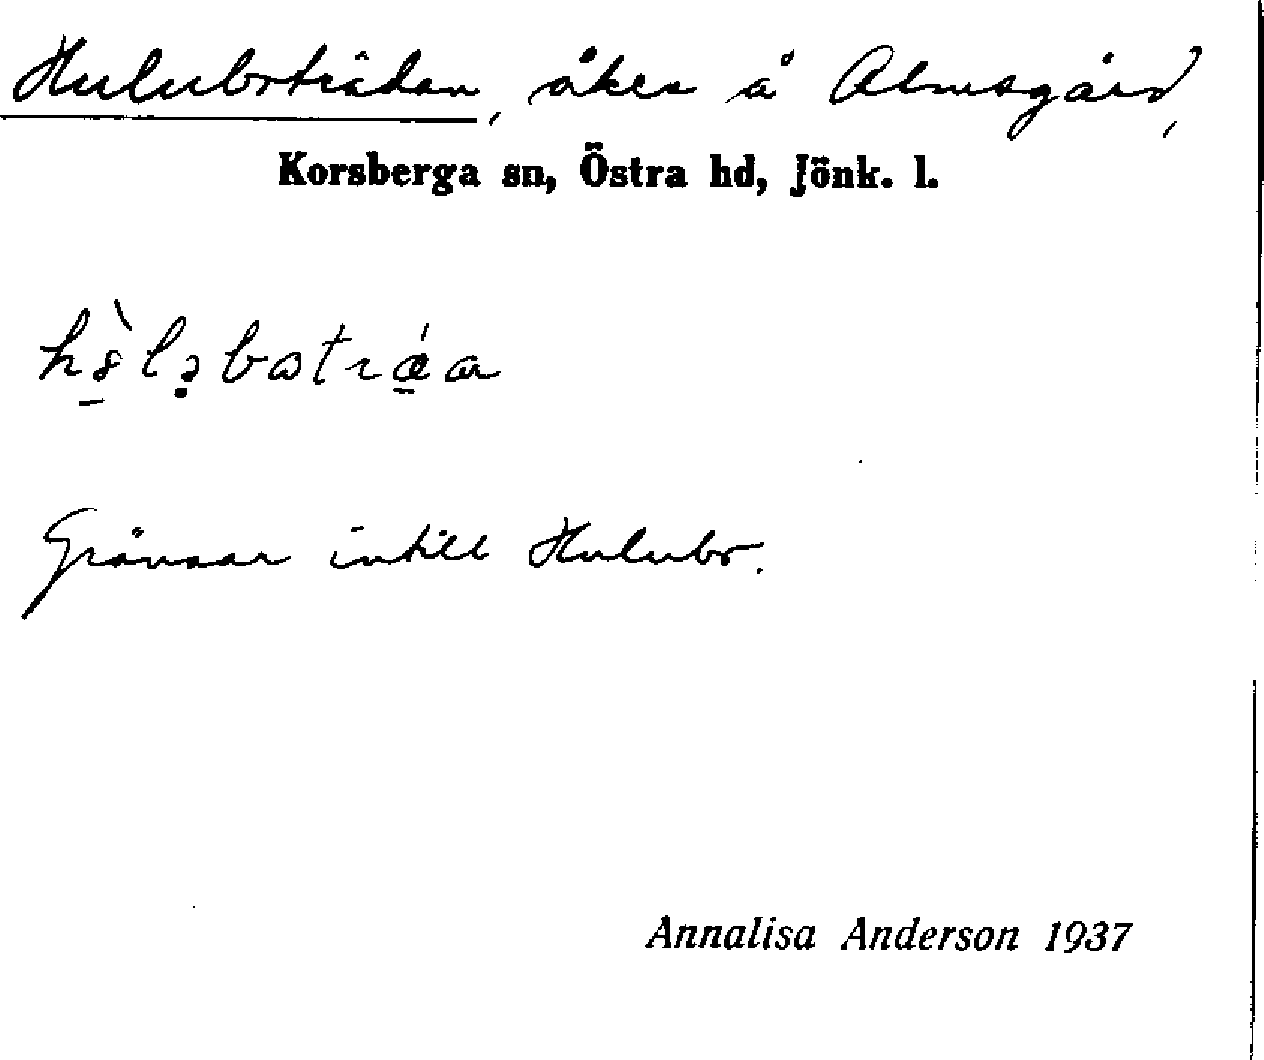 Huluboträdan, åker å Almsgård,
Korsberga sn, Östra hd, Jönk. l.
Gränsar intill Hulubo.
Annalisa Anderson 1937